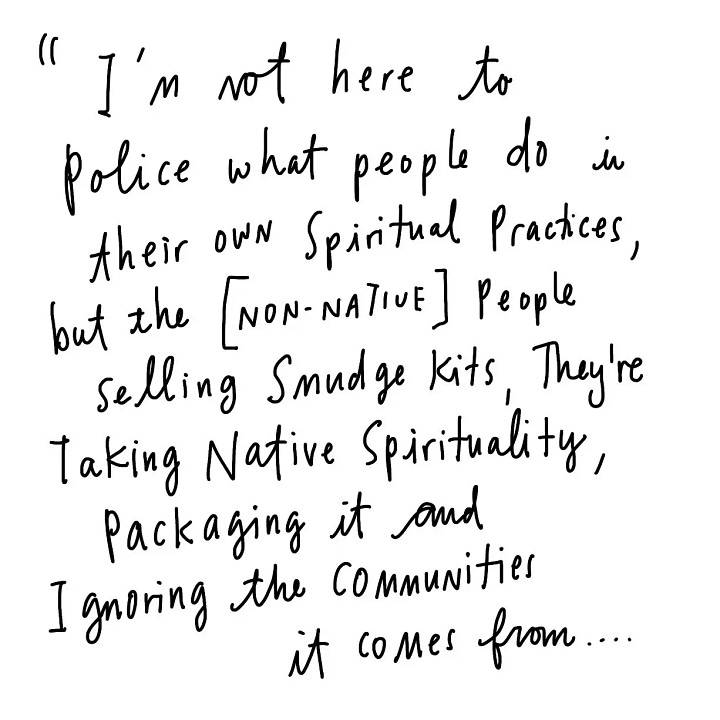 “I'm not here to
police what people do in
their OWN Spiritual Practices,
but the [NON-NATIVE] People
selling Smudge Kits, They're
Taking Native Spirituality,
packaging it and
Ignoring the COMMUNITIES
it comes from....